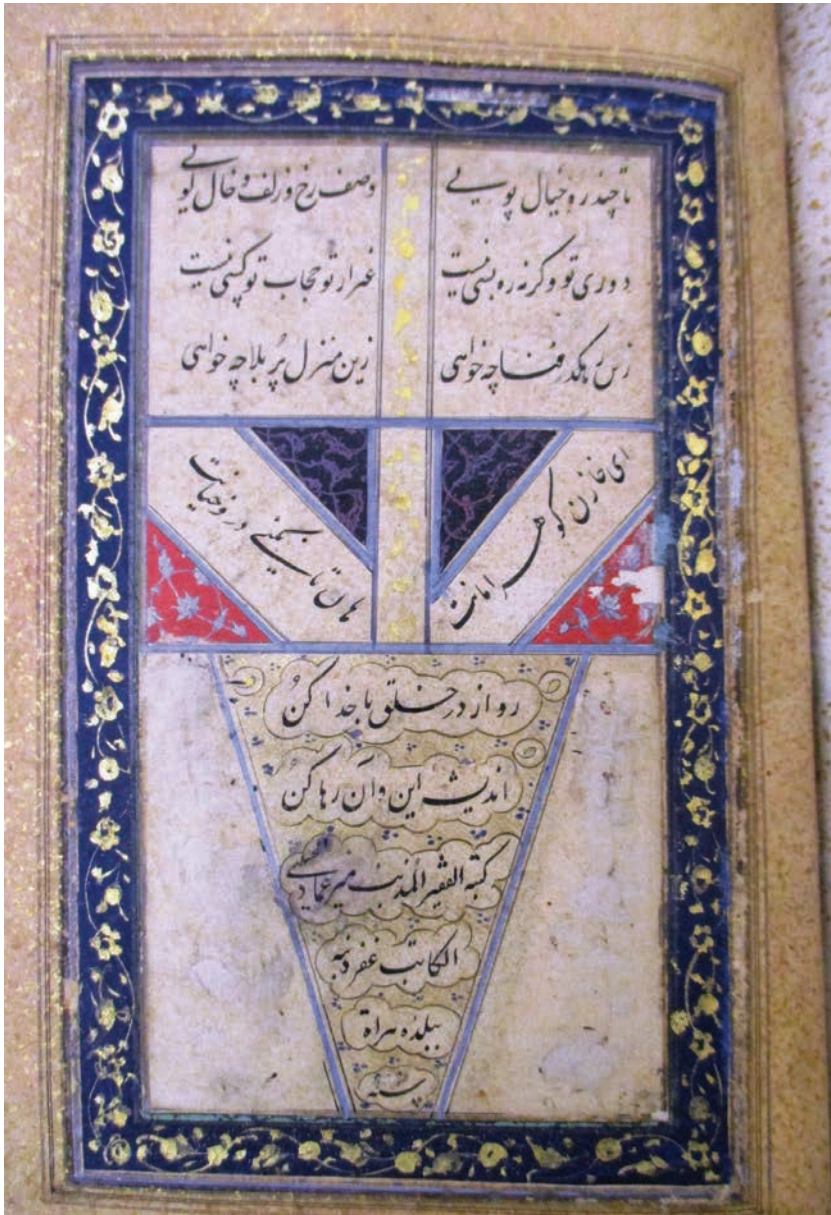 تا چند ره خیال پویی
وصف رخ و زلف و خال گویی
دوری تو وگرنه ره بسی نیست
غیر از تو حجاب تو کسی نیست
زین رهگذر فنا چه خواهی
زین منزل پر بلا چه خواهی
ای خازن گوهر امانت
هان تا نکنی درو خیانت
رو از در خلق با خدا کن
اندیشه این و آن رها کن
کتبه الفقیر المذنب میر عماد
الکاتب غفر ذنبه
ببلده هراة
سنه